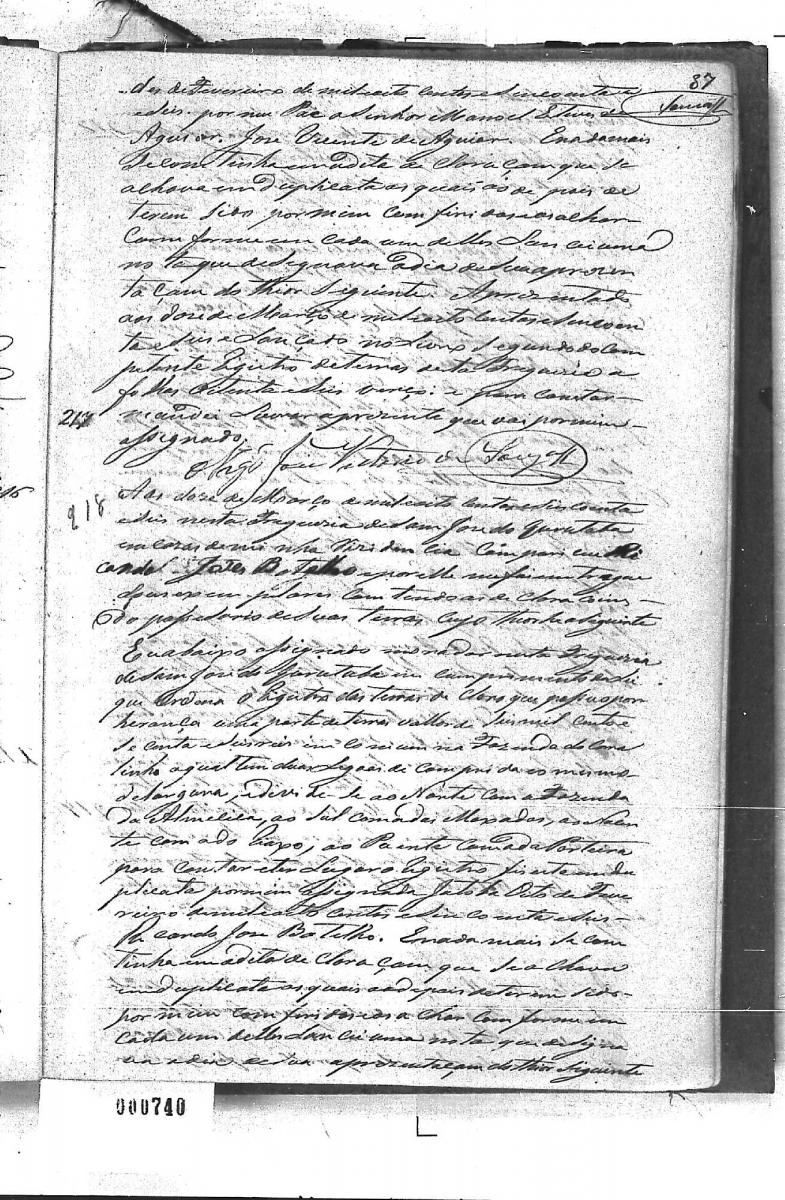 37
Souza
des de Fevereiro de mil oito centos e sincoenta e
e seis. por meu Pae o Senhor Manoel Esteves de
Aguiar. José Vicente de Aguiar. E nada mais
se com tinha em a dita de clara çam que se
achava em duplicata as quais de pois de
terem sido por mim com firi das e as achar
com forme em cada um dellas lan cei uma
no ta que de Signava a dia de sua aprezen
ta çam do thior Seguinte. Aprezentado
aos doze de Março de mil oito centos e sincoen
ta e seis e Lan cado no Livro Segundo do com
petente Rigistro de terras desta Freguezia a
folhas oitenta e seis verço: e para constar
217
mandei Lavrar a prezente que vai por mim
assignado.
O Vigr.º José de Souza
218
Aos doze de Março de mil oito centos e sincoenta
e seis nesta Freguezia de Sam José do
em caza de mi nha Rizi den cia Com pareceu Ri
cardo José Botelho e por elle me foi em tregue
dous exem plares com tendo as de clara coins
do possesorio de suas terras cujo thior he o Siguinte
Eu abaixo assignado morador nesta Freguezia
de Sam José do em comprimento da Lei
que ordena o Rigistro das terras de claro que possuo por
herança uma parte de terras vallor de Seis mil cento e
se centa e seis reis em co mum na Fazenda do Cora
linho a qual tem duas Legoas de compri da e o mesmo
de largura, e divi de se ao Norte com a Fazenda
da Almecica, ao Sul com a das Moxadas, ao Nacen
te com a do Riaxo, ao Poente com a da Porteira
para contar e ter Lugar o Rigistro fis este em du
plicata por mim assignado Jatobá Oito de Feve
reiro de mil oito centos e Sin co enta e Seis-
Ri cardo José Botelho. E nada mais se com
tinha em a dita de clara çam que se a chava
em duplicata as quais de pois de terem Sido
por mim com firi das e as a char com forme em
cada um dellas lan cei uma no ta que de Signa
va a dia de sua aprezentaçam do thior Siguinte
000740